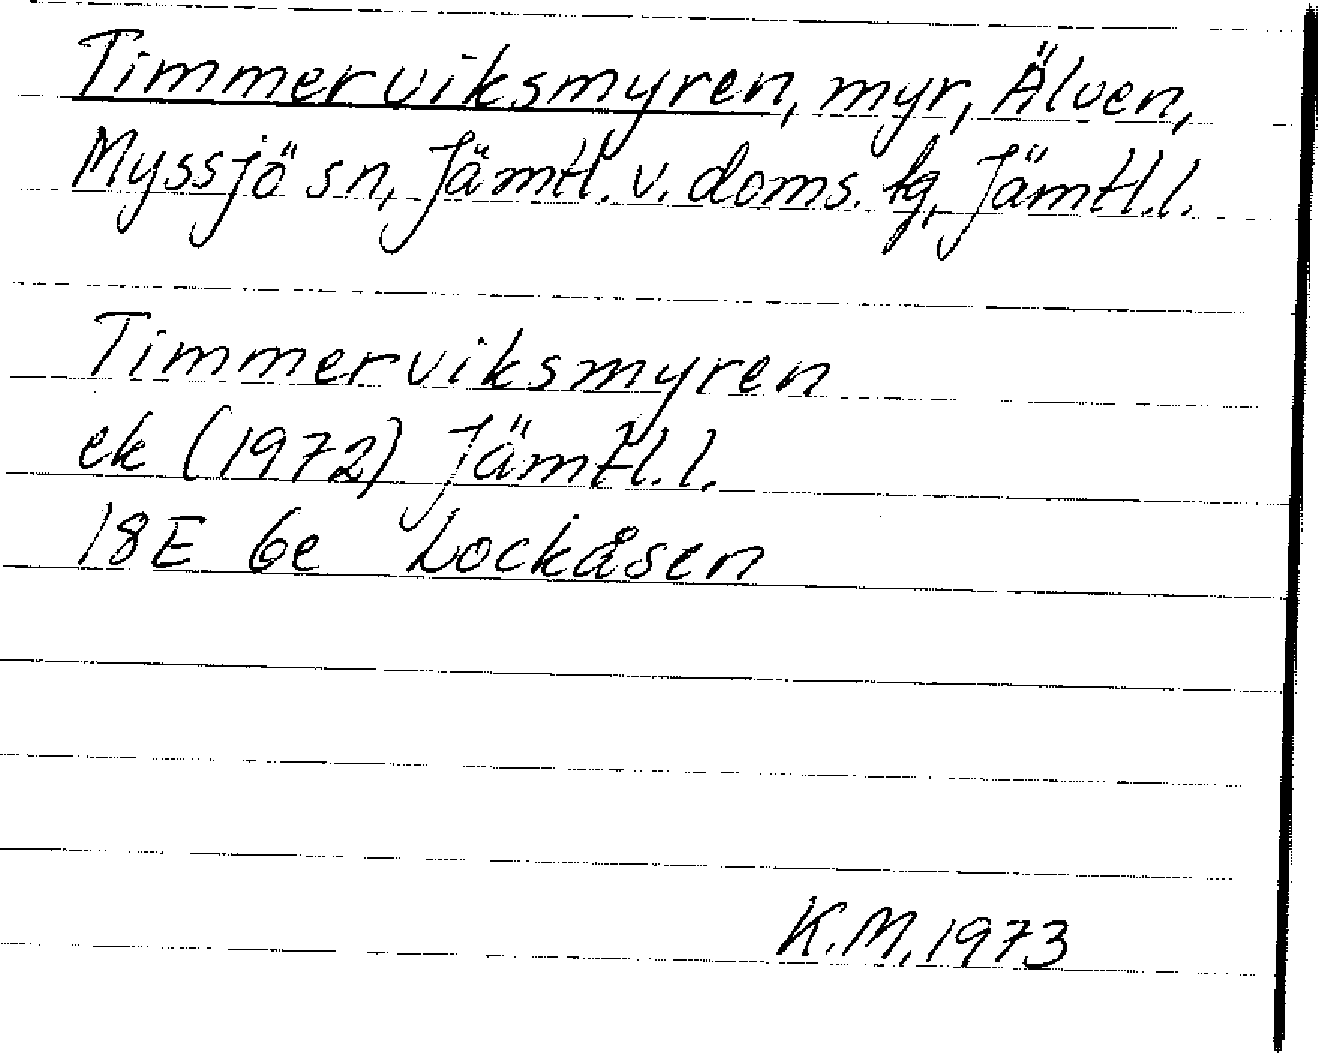 Timmerviksmyren, myr, Älven,
Myssjö sn, Jämtl. v. doms. tg, Jämtl.l.
Timmerviksmyren
ek (1972) Jämtl.l.
18E 6e Lockåsen
K.M. 1973